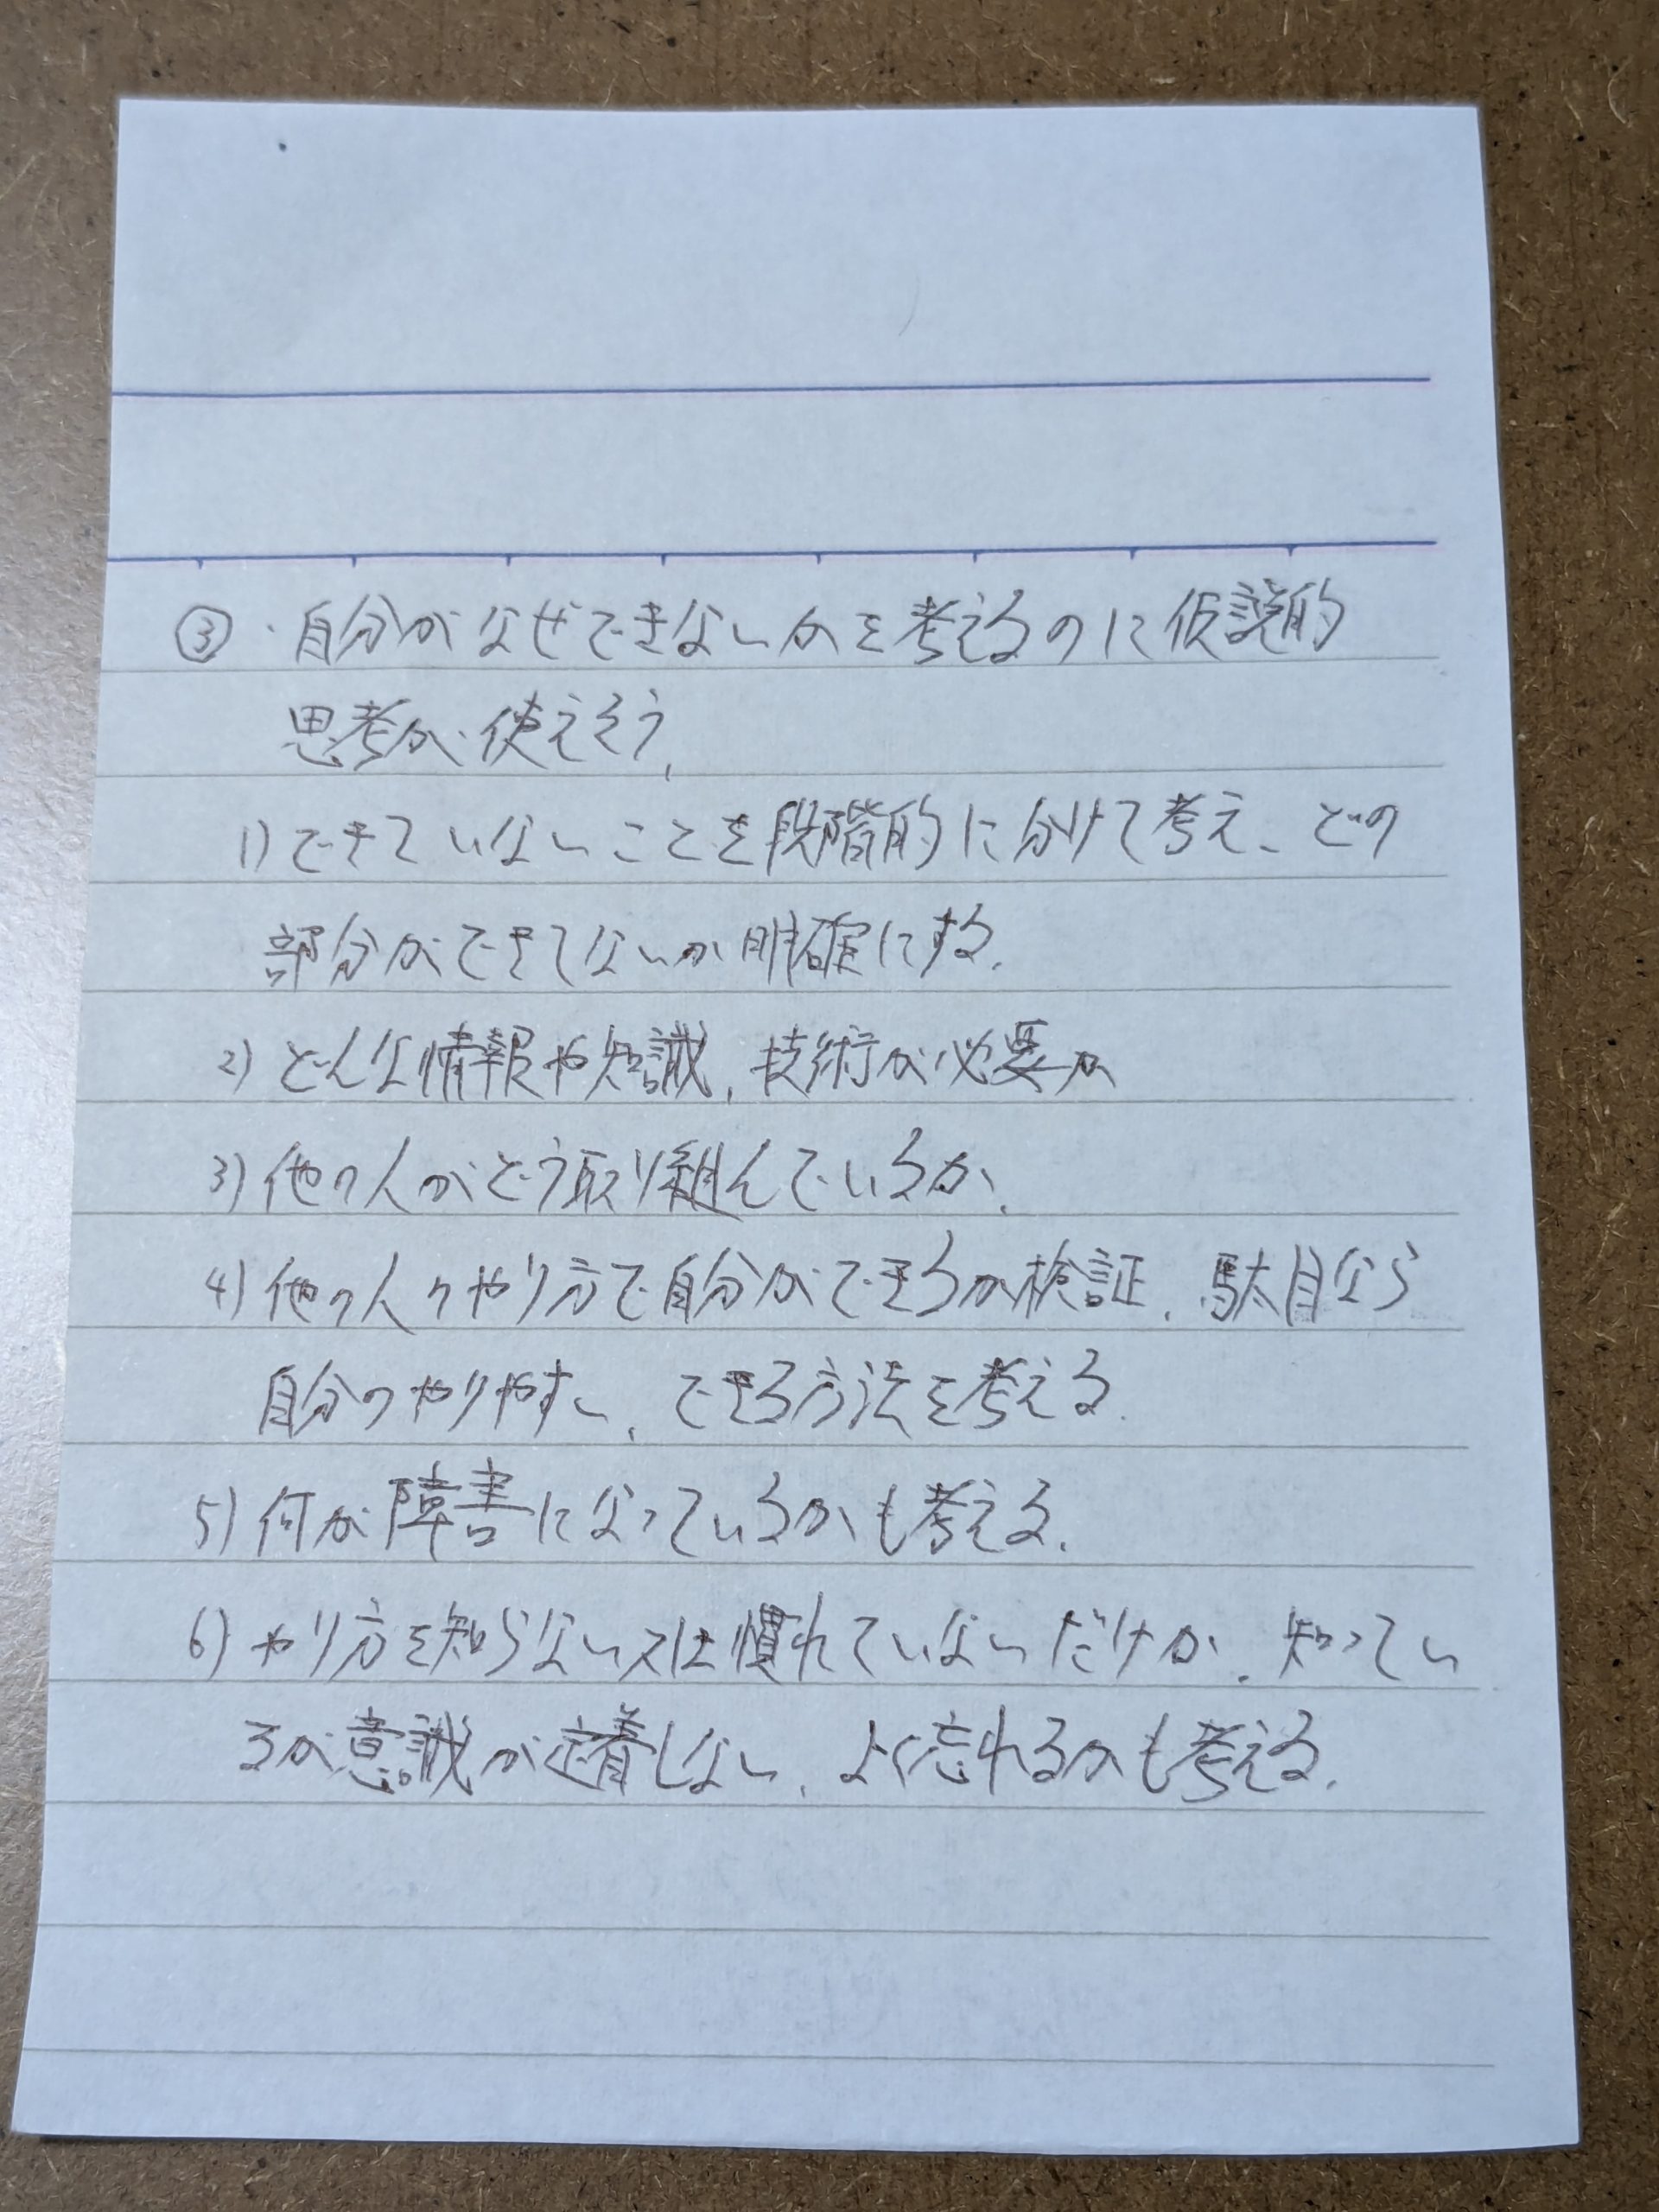 ③・自分がなぜできないかを考えるのに仮説的
思考が使えそう、
1) できていないことを段階的に分けて考え、どの
部分ができてないか明確にする。
2) どんな情報や知識、技術が必要か
3) 他の人がどう取り組んでいるか、
4) 他の人のやり方で自分ができるか検証、駄目なら
自分のやりやすい、できる方法を考える。
5) 何が障害になっているかも考える。
6) やり方を知らない又は慣れていないだけか、知ってい
るが意識が定着しない、よく忘れるかも考える。